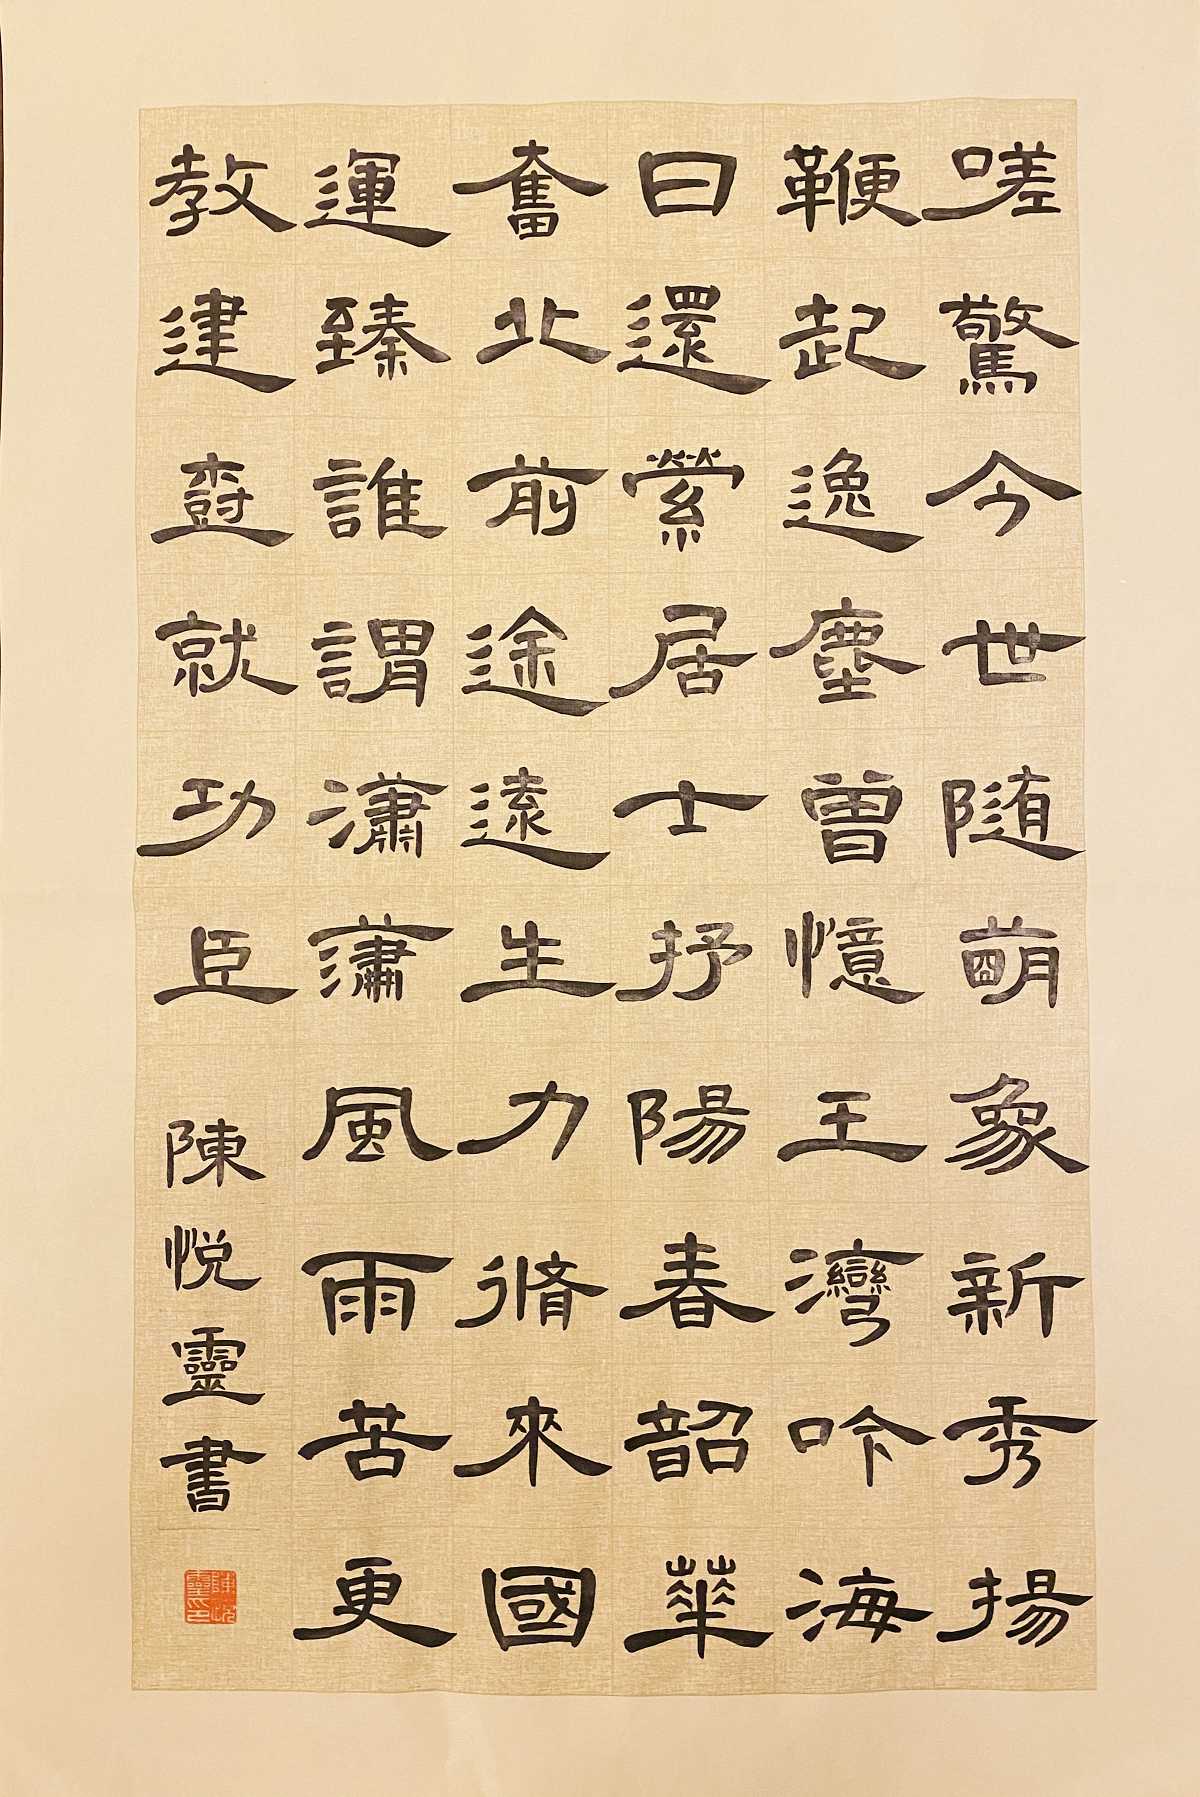 嗟驚今世随萌象新秀揚
鞭起逸塵曾憶王灣吟海
日還縈居士抒陽春韶華
奮北前途遠生力脩來國
運臻誰謂瀟瀟風雨苦更
教建樹就功臣
陳悅靈書
陳悅靈印